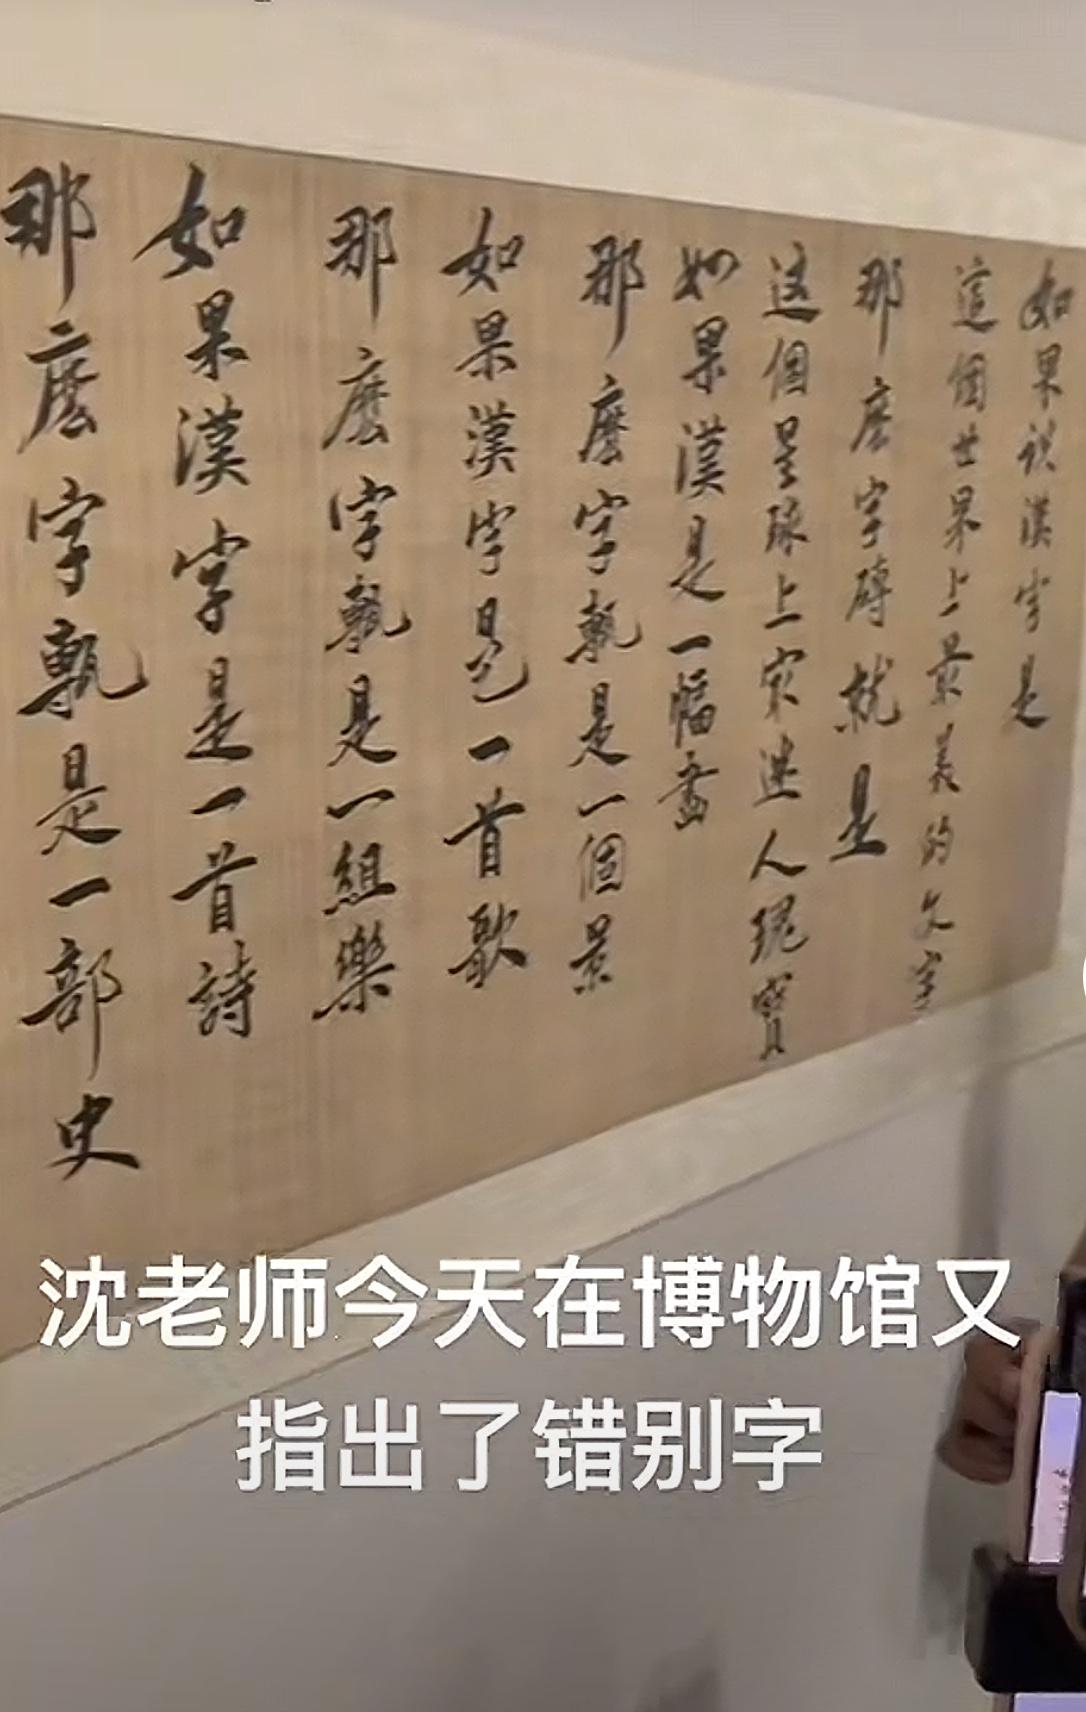 如果说漢字是
這個世界上最美的文字
那麽字磚就是
这個星球上最迷人瑰寶
如果漢是一幅畫
那麽字甎是一個景
如果漢字是一首歌
那麽字甎是一組樂
如果漢字是一首詩
那麽字甎是一部史
沈老师今天在博物馆又
指出了错别字